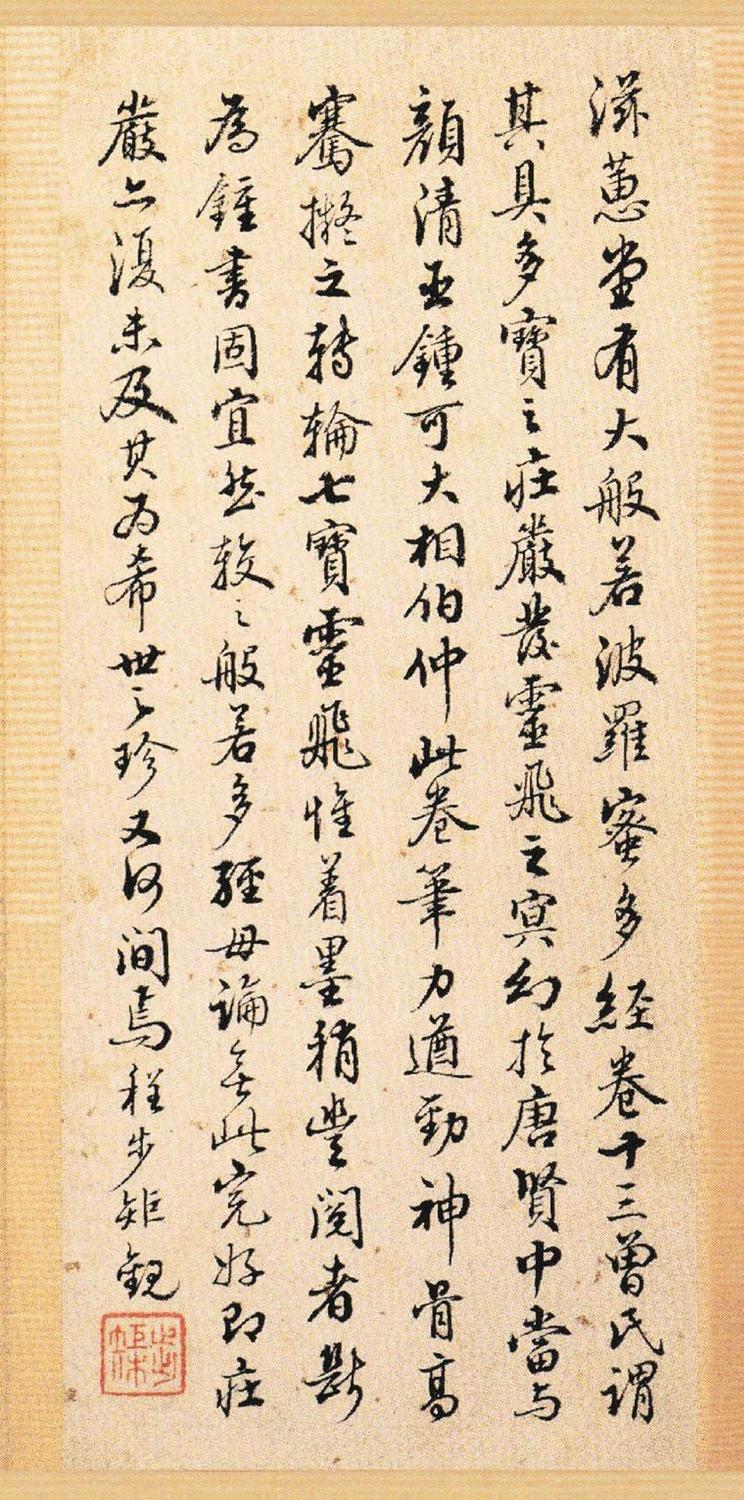 滋蕙堂有大般若波羅蜜多経卷十三曾氏謂
其具多寶之莊嚴發靈飛之冥幻於唐賢中當与
顏清臣鍾可大相伯仲此卷筆力遒勁神骨高
騫擬之轉輪七寶靈飛惟着墨稍豐閱者斷
為鍾書固宜然較之般若多經毋論無此完好即莊
嚴亦復未及其為希世之珍又何間焉程步矩觀